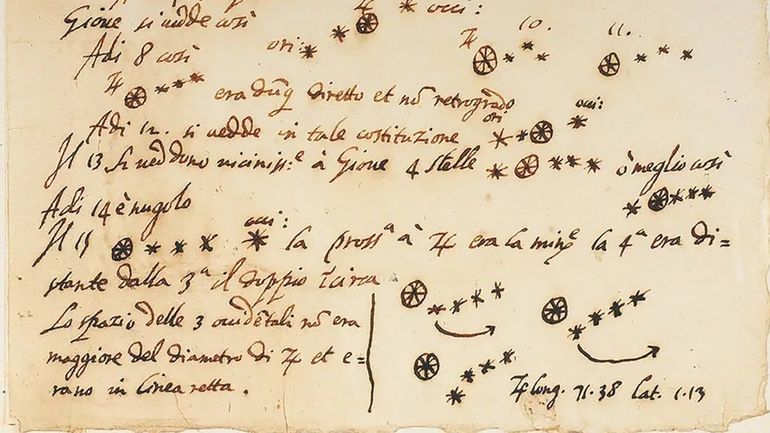 Gioue si uedde così ♃ occi:
Adi 8 così ori: ♃ 10. 11.
♃ era dūq diretto et nō retrogrado
Adi 12. si uedde in tale costituzione ori occi:
Il 13 si ueddono uiciniss.e à Gioue 4 stelle ò meglio così
Adi 14 è nugolo
Il 15 occi: la prossa à ♃ era la mine la 4a era di-
stante dalla 3a il doppio īcirca
Lo spazio delle 3 occidētali nō era
maggiore del diametro di ♃ et e-
rano in linea retta.
♃ long. 71.38 lat. 1.13